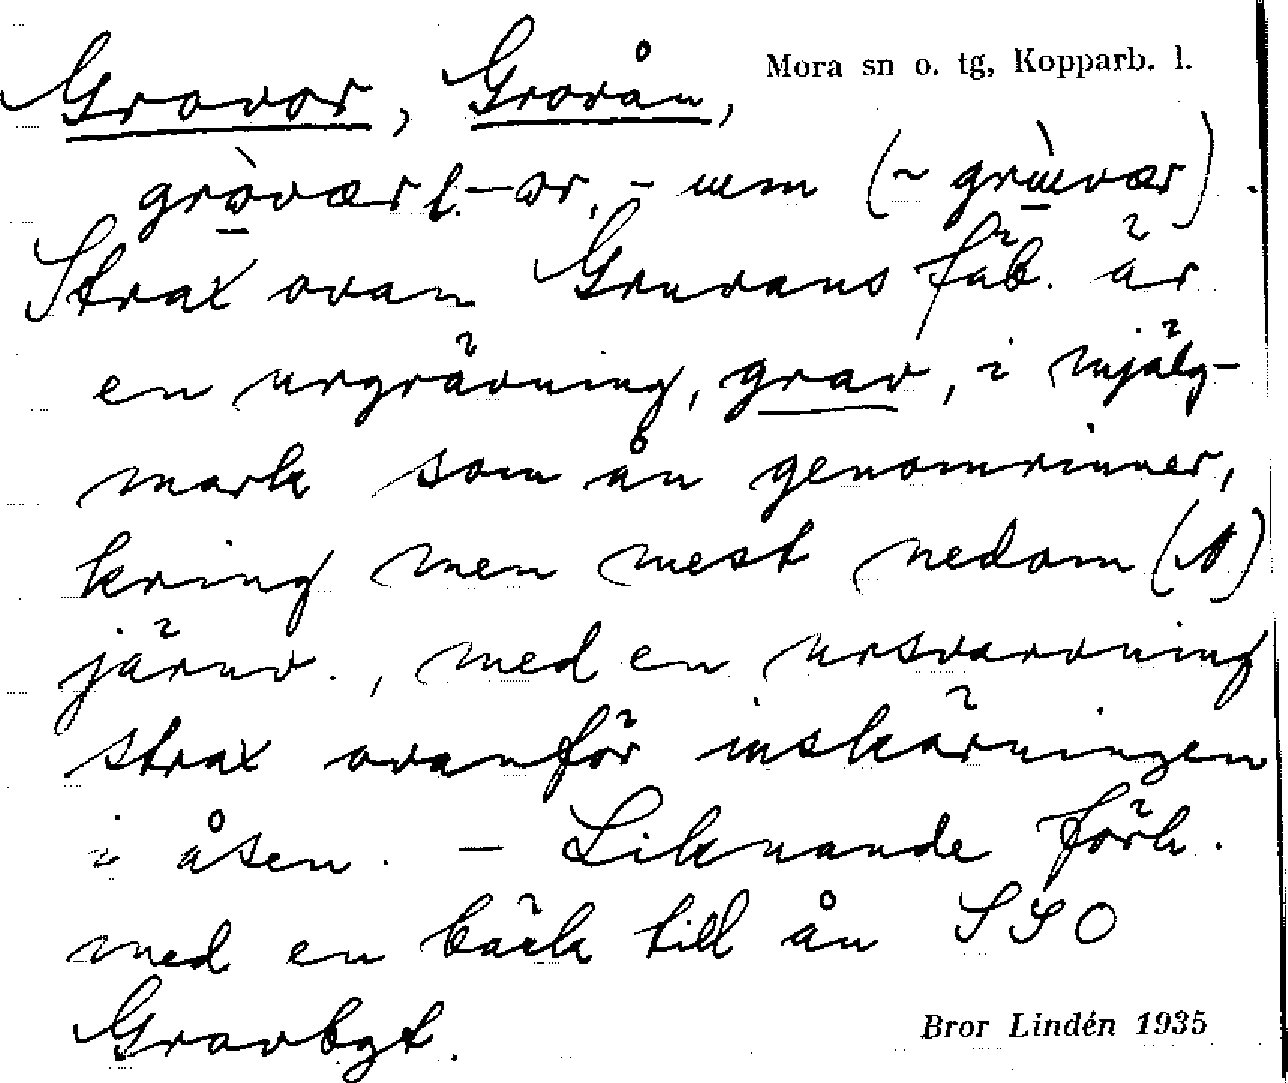 Gravor, Grovån, Mora sn o. tg, Kopparb. l.
Strax ovan Gruvans fäb. är
en urgrävning, grav, i mjälg-
mark som ån genomrinner,
kring men mest nedom (N)
järnv., med en ursvarvning
strax ovanför inskärningen
i åsen. – Liknande förh.
med en bäck till ån SSO
Gravbgt.
Bror Lindén 1935